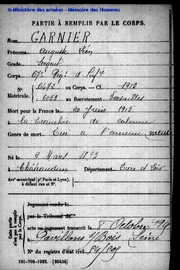 © Ministère des armées - Mémoire des Hommes
PARTIE À REMPLIR PAR LE CORPS.
Nom GARNIER
Prénoms Auguste Léon
Grade Sergent
Corps 67e Régt d' Inf
N° au Corps. — Cl. 1913
Matricule. au Recrutement Versailles
Mort pour la France le 20 Juin 1915
à la tranchée de calonne
Genre de mort Tué à l'ennemi
Né le 2 Mars 1893
à Châteaudun Département Eure et Loir
Arr municipal (pr Paris et Lyon),
à défaut rue et N°.
Jugement rendu le
par le Tribunal de
acte ou jugement transcrit le 8 Octobre
Pavillons s/ Bois Seine
N° du registre d'état civil